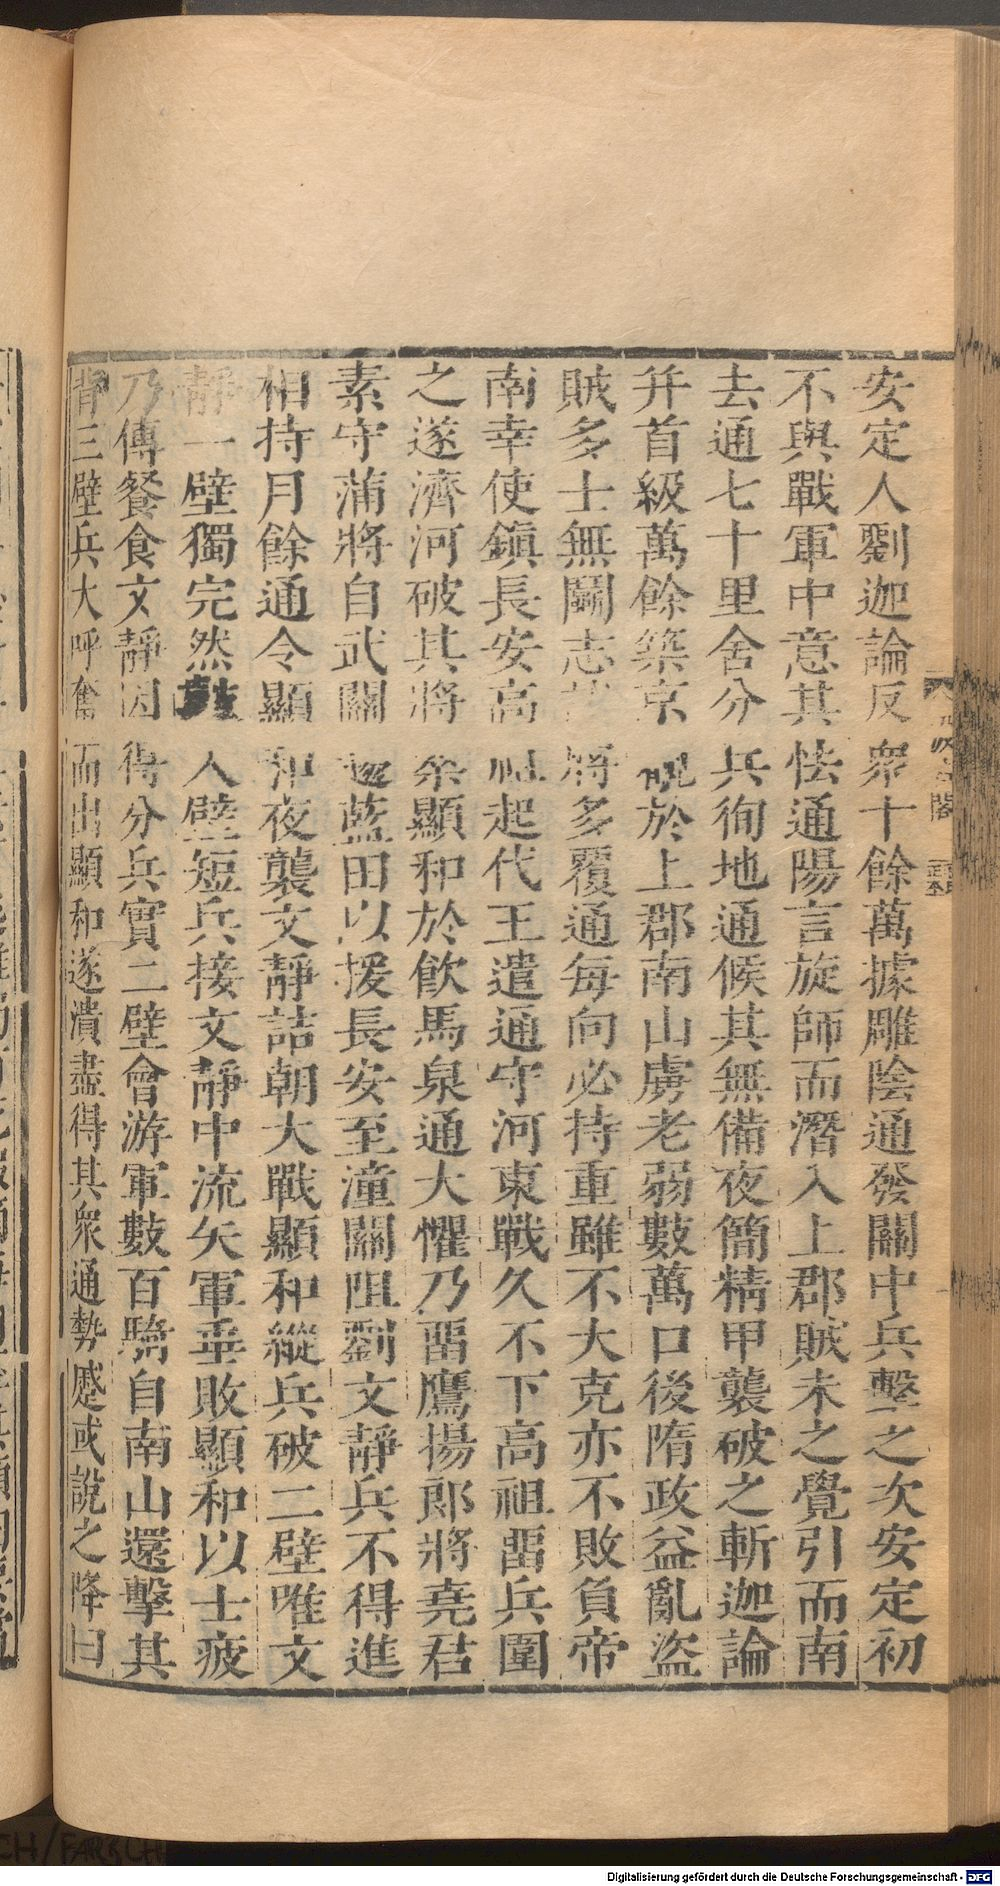 安定人劉迦論反衆十餘萬據雕陰通發關中兵擊之次安定初
不與戰軍中意其怯通陽言旋師而潛入上郡賊未之覺引而南
去通七十里舍分兵徇地通候其無備夜簡精甲襲破之斬迦論
并首級萬餘築京觀於上郡南山虜老弱數萬口後隋政益亂盜
賊多士無鬬志諸將多覆通每向必持重雖不大克亦不敗負帝
南幸使鎮長安高祖起代王遣通守河東戰久不下高祖畱兵圍
之遂濟河破其將桑顯和於飲馬泉通大懼乃畱鷹揚郎將堯君
素守蒲將自武關趨藍田以援長安至潼關阻劉文靜兵不得進
相持月餘通令顯和夜襲文靜詰朝大戰顯和縱兵破二壁唯文
靜一壁獨完然數入壁短兵接文靜中流矢軍垂敗顯和以士疲
乃傳餐食文靜因得分兵實二壁會游軍數百騎自南山還擊其
背三壁兵大呼奮而出顯和遂潰盡得其衆通勢蹙或說之降曰
Digitalisierung gefördert durch die Deutsche Forschungsgemeinschaft - DFG